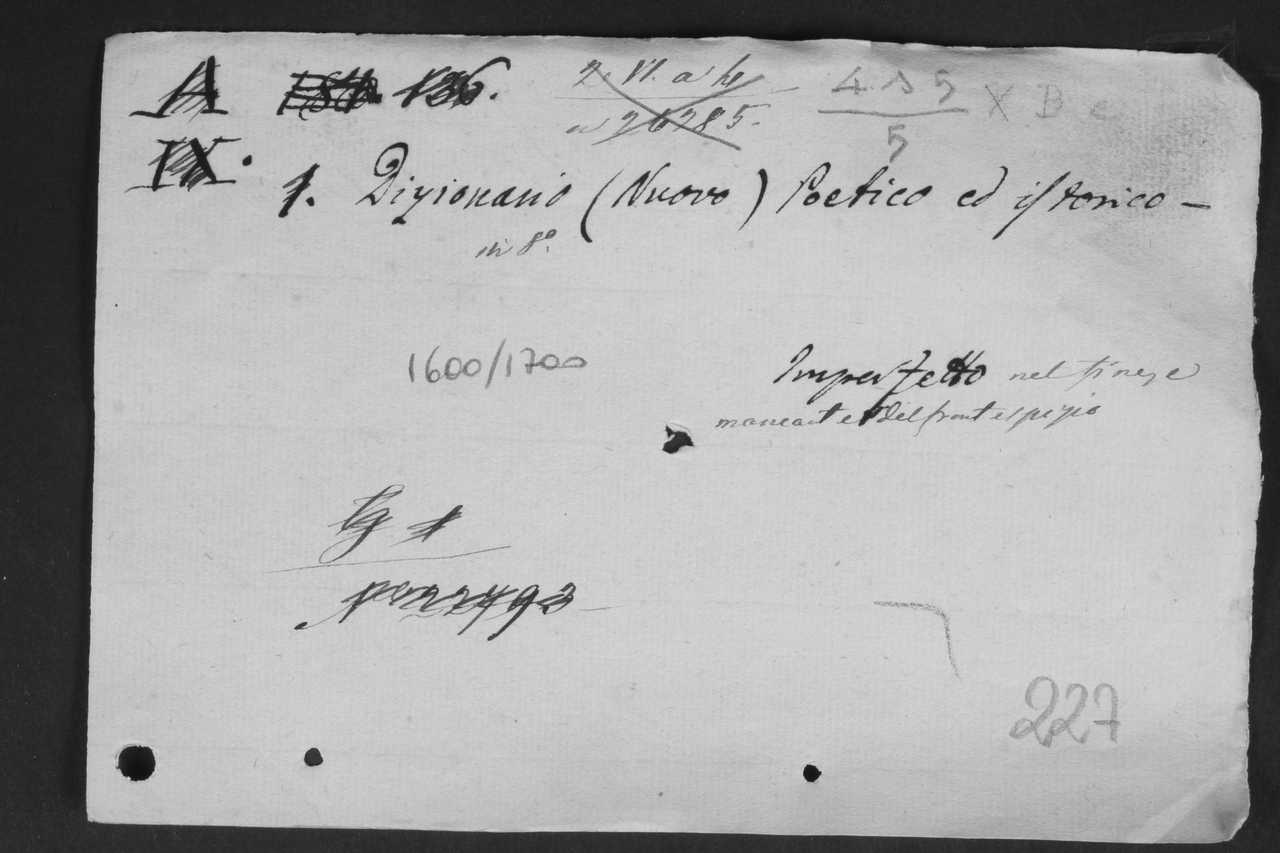 A 136.
2. VI. a 4
n 26285.
4 D 5
5
X B c
IX.
1. Dizionario (Nuovo) Poetico ed istorico —
in 8º.
1600/1700
Imperfetto nel fine, e
mancante del frontespizio
Nº 22493
227